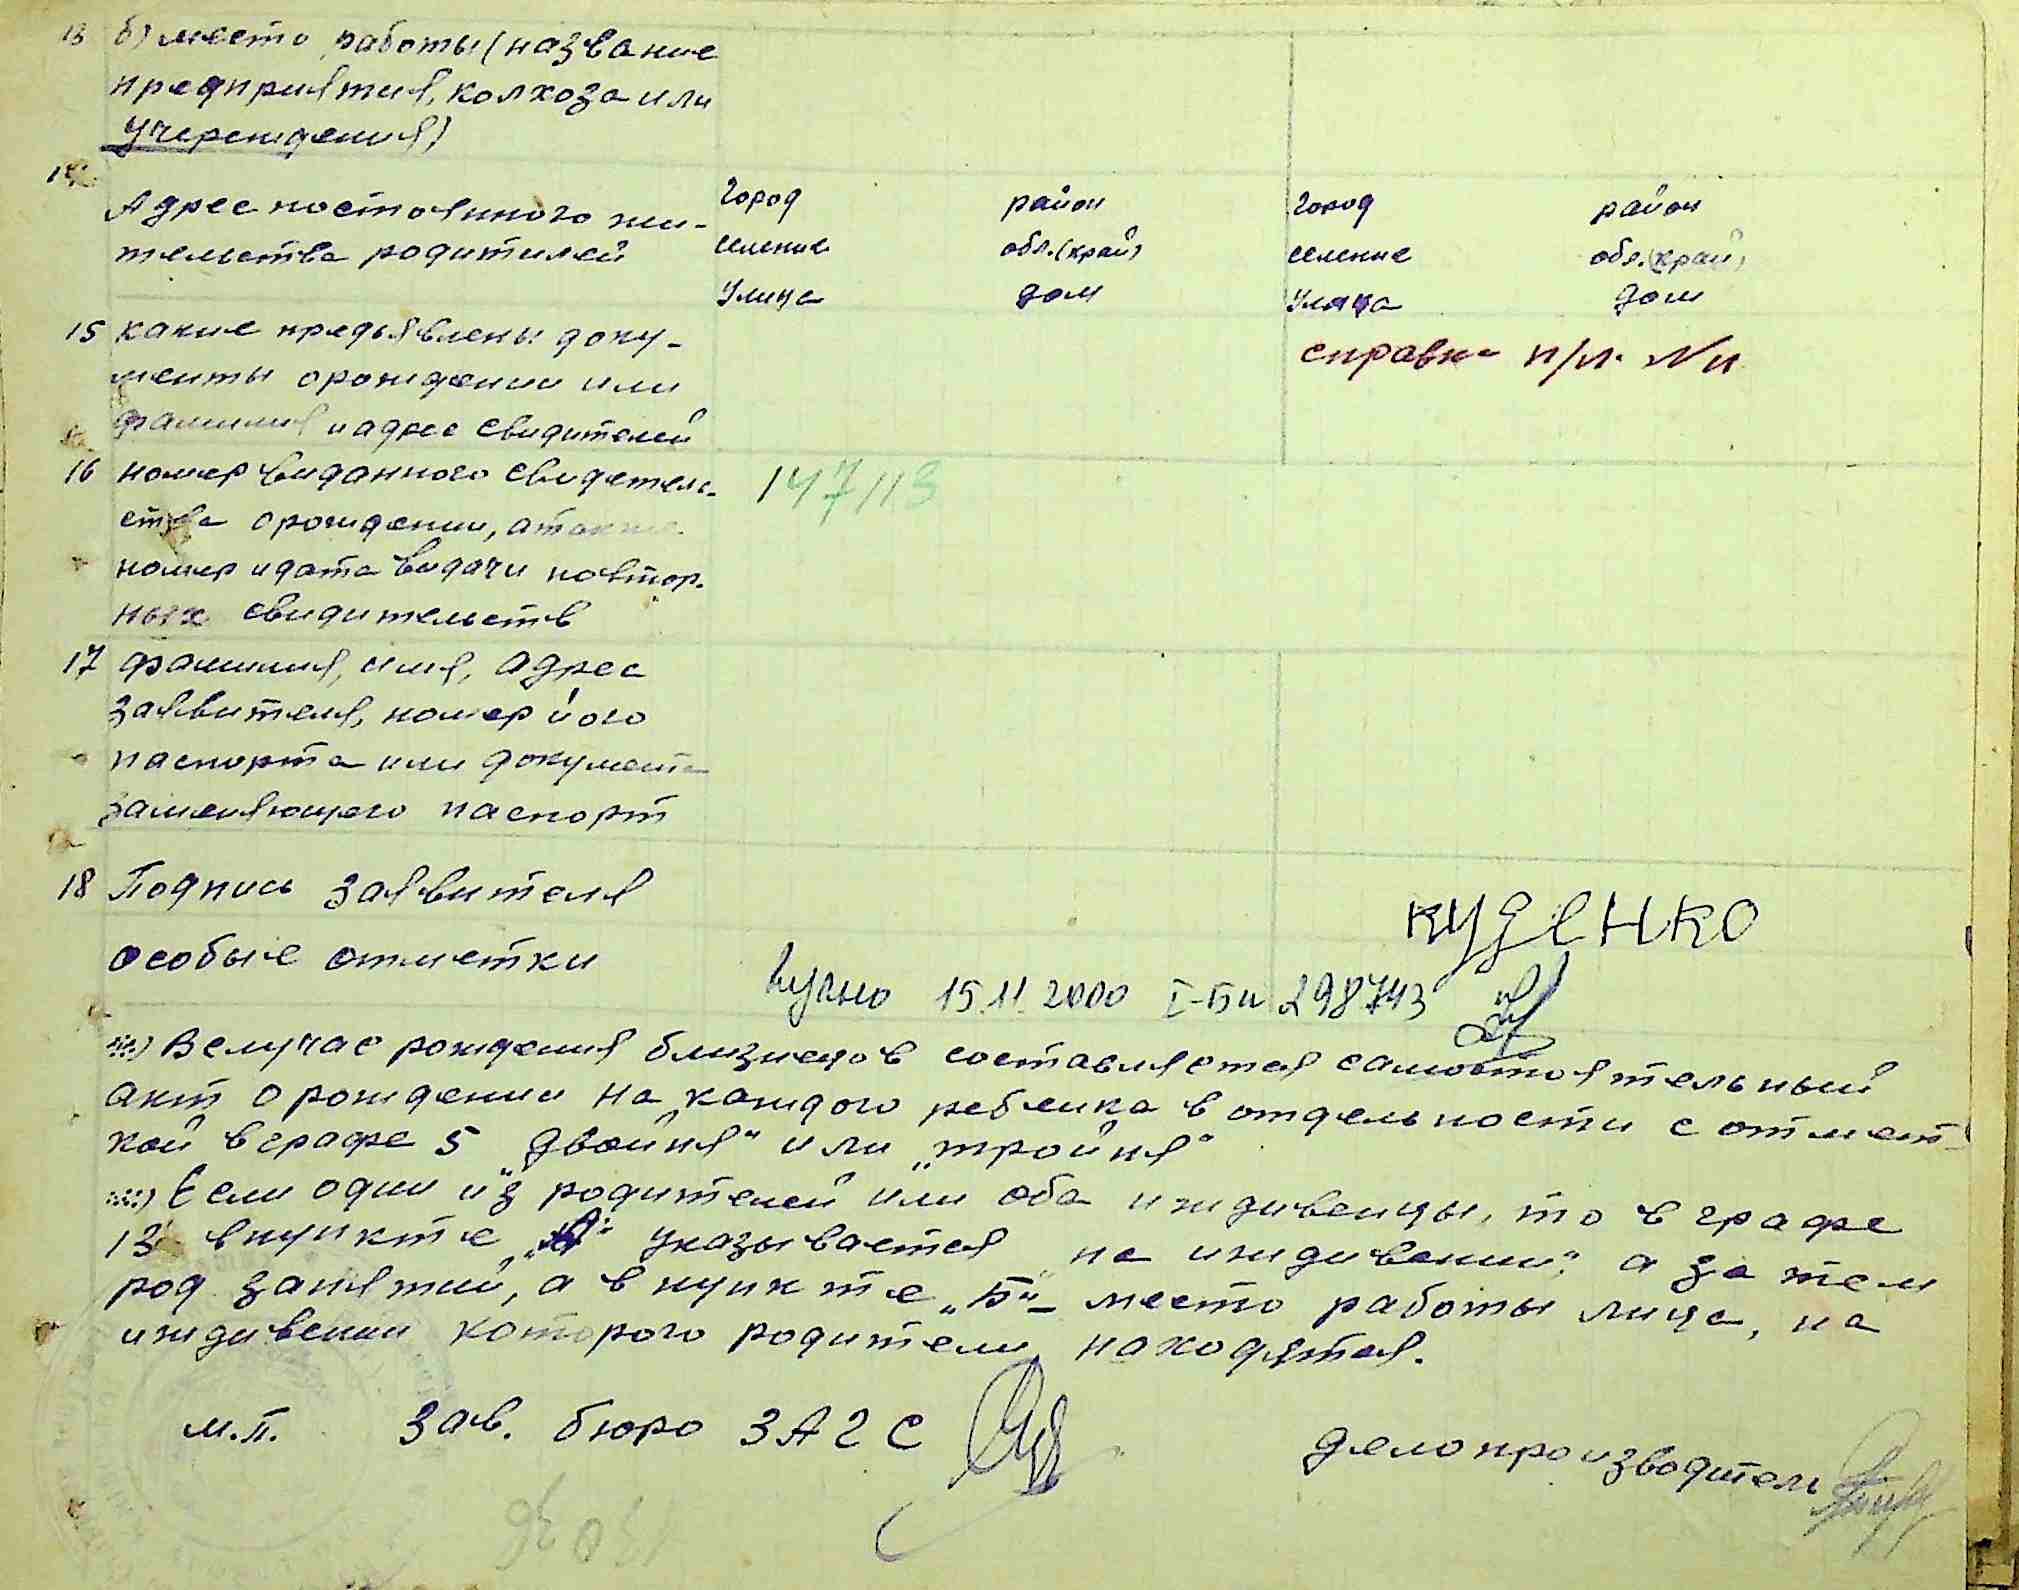 13 б) место работы (название
предприятия, колхоза или
учереждения)
14
Адрес постоянного жи-
тельства родителей
город район город район
селение обл. (край) селение обл. (край)
улица дом улица дом
15 какие предъявлены доку-
менты о рождении или
фамилия и адрес свидителей
справка
16 номер выданного свидетель-
ства о рождении, а также
номер и дата выдачи повтор-
ных свидительств
147/13
17 фамилия, имя, адрес
заявителя, номер його
паспорта или документа
заменяющего паспорт
18 Подпись заявителя
КУЦЕНКО
особые отметки
15.11.2000 I-БП 298743
) В случае рождения близнецов составляется самостоятельный
акт о рождении на каждого ребенка в отдельности с отмет-
кой в графе 5 „двойня" или „тройня"
) Если один из родителей или оба иждивенцы, то в графе
13 в пункте „А" указывается „на иждивении", а затем
род занятий, а в пункте „Б" – место работы лица, на
иждивении которого родители находятся.
м.п. Зав. бюро ЗАГС делопроизводитель